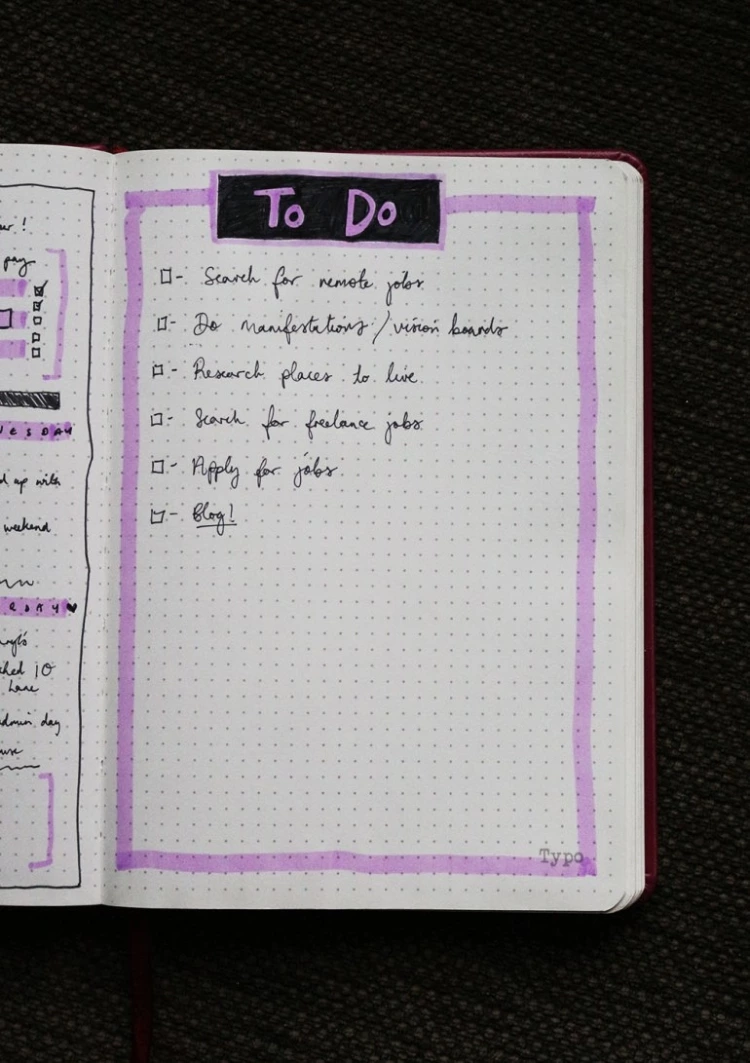 pay
U E S D A Y
d up with
weekend
R D A Y
ched 10
Lane
admin day
To Do
- Search for remote jobs
- Do manifestations / vision boards
- Research places to live
- Search for freelance jobs
- Apply for jobs
- Blog!
Typo